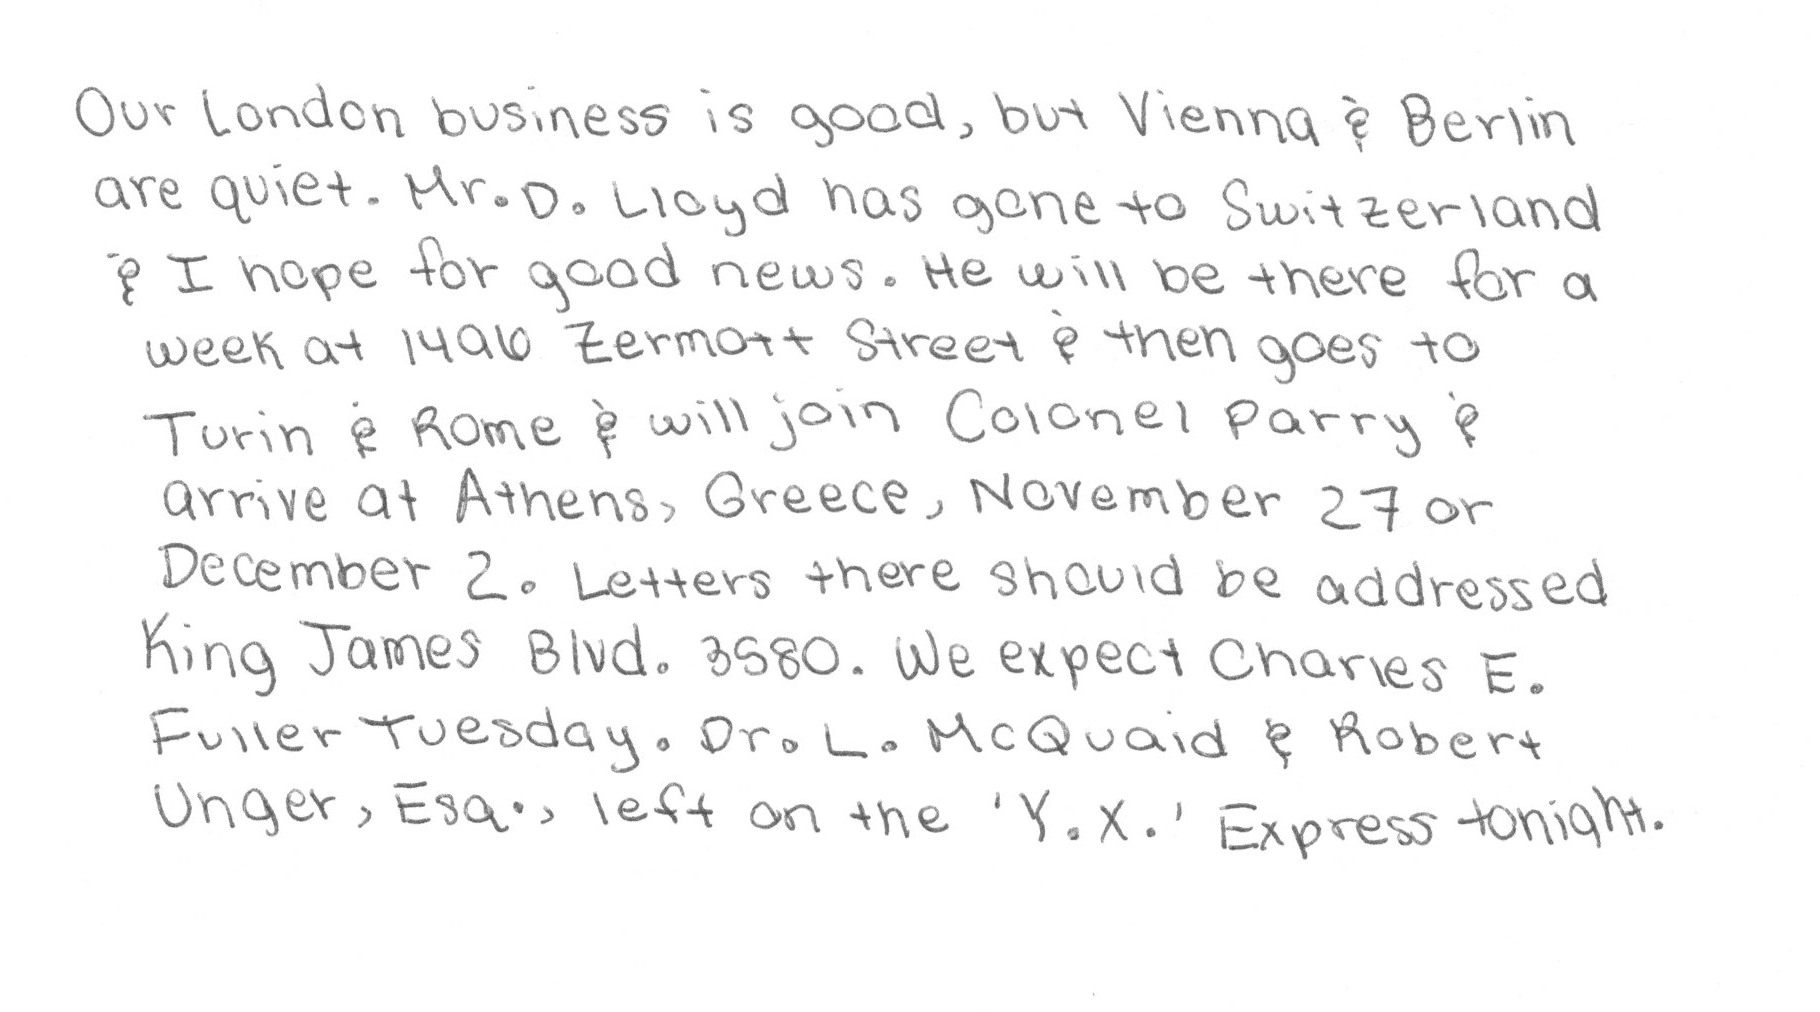 Our London business is good, but Vienna & Berlin
are quiet. Mr. D. Lloyd has gone to Switzerland
& I hope for good news. He will be there for a
week at 1496 Zermott Street & then goes to
Turin & Rome & will join Colonel Parry &
arrive at Athens, Greece, November 27 or
December 2. Letters there should be addressed
King James Blvd. 3580. We expect Charles E.
Fuller Tuesday. Dr. L. McQuaid & Robert
Unger, Esq., left on the 'Y.X.' Express tonight.